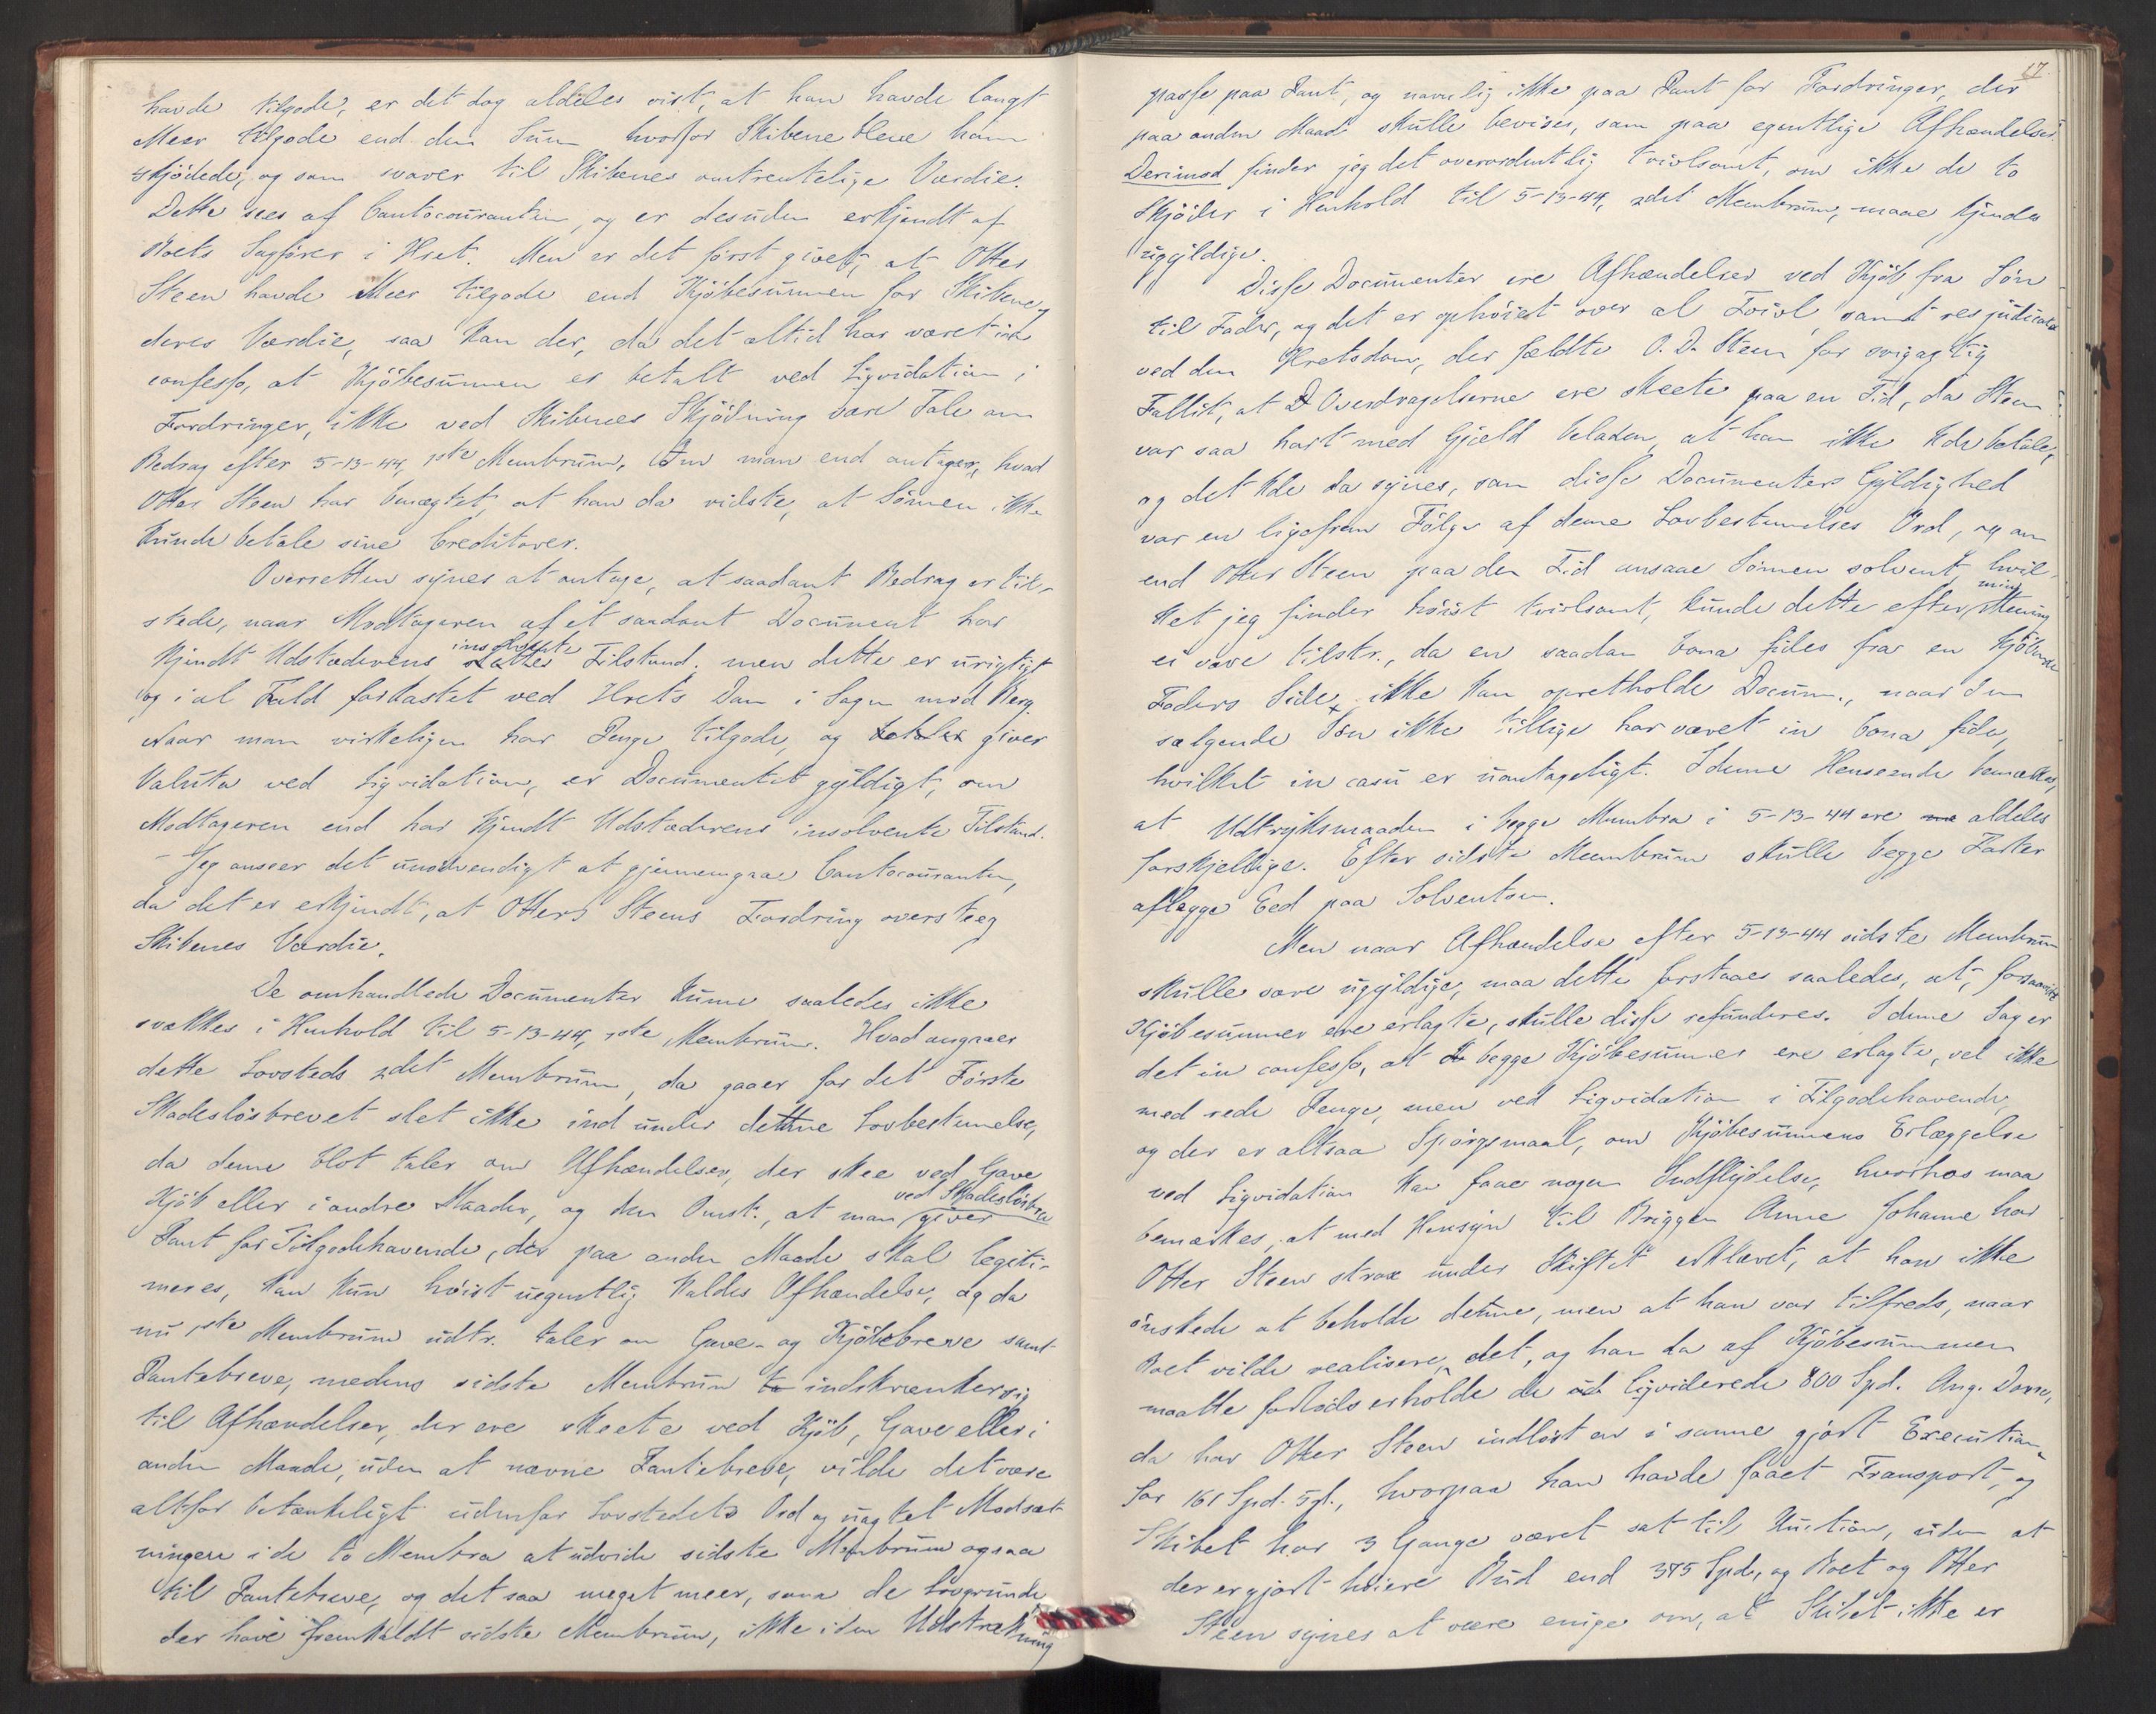 havde tilgode, er det dog aldeles vist, at han havde langt
Meer tilgode end den Sum hvorfor Skibene bleve ham
skjödede, og som svarer til Skibenes omtrentelige Værdie.
Dette sees af Contocouranten, og er desuden erkjendt af
Boets Sagfører i Hret. Men er det først givet, at Otter
Steen havde Meer tilgode end Kjöbesummen for Skibene og
deres Værdie, saa kan der, da det altid har været in
confesso, at Kjöbesummen er betalt ved Liqvidation i
Fordringer, ikke ved Skibenes Skjödning være Tale om
Bedrag efter 5-13-44, 1ste Membrum, om man end antager, hvad
Otter Steen har benægtet, at han da vidste, at Sönnen ikke
kunde betale sine Creditorer.
Overretten synes at antage, at saadant Bedrag er til-
stede, naar Modtageren af et saadant Document har
kjendt Udstæderens insolvente Tilstand; men dette er urigtigt
og i al Fald forkastet ved Hrets Dom i Sagen mod Berg.
Naar man virkeligen har Penge tilgode, og giver
Valuta ved Liqvidation, er Documentet gyldigt, om
Modtageren end har kjendt Udstæderens insolvente Tilstand.
- Jeg anseer det unödvendigt at gjennemgaae Contocouranten,
da det er erkjendt, at Otters Steens Fordring oversteeg
Skibenes Værdie.
De omhandlede Documenter kunne saaledes ikke
svækkes i Henhold til 5-13-44, 1ste Membrum. Hvad angaaer
dette Lovsteds 2det Membrum, da gaaer for det Förste
Skadeslösbrevet slet ikke ind under denne Lovbestemmelse,
da denne blot taler om Afhændelser, der skee ved Gave
Kjöb eller i andre Maader, og den Omst., at man ved Skadeslösbrev giver
Pant for Tilgodehavende, der paa anden Maade skal legiti-
meres, kan kun höist uegentlig kaldes Afhændelse, og da
nu 1ste Membrum udtr. taler om Gave- og Kjöbebreve samt
Pantebreve, medens sidste Membrum indskrænker sig
til Afhændelser, der ere skeete ved Kjöb, Gave eller i
anden Maade, uden at nævne Pantebreve, vilde det være
altfor betænkeligt udenfor Lovstedets Ord og uagtet Modsæt-
ningen i de to Membra at udvide sidste Membrum ogsaa
til Pantebreve, og det saa meget meer, som de Lovgrunde
der have fremkaldt sidste Membrum, ikke i den Udstrækning
17.
passe paa Pant, og navnlig ikke paa Pant for Fordringer, der
paa anden Maade skulle bevises, som paa egentlige Afhændelser.
Derimod finder jeg det overordentlig tvivlsomt, om ikke de to
Skjöder i Henhold til 5-13-44, 2det Membrum, maae kjendes
ugyldige.
Disse Documenter ere Afhændelser ved Kjöb fra Sön
til Fader, og det er ophöiet over al Tvivl, samt res judicata
ved den Hretsdom, der fældte O. D. Steen for svigagtig
Fallit, at Overdragelserne ere skeete paa en Tid, da Steen
var saa hart med Gjæld beladen, at han ikke kde betale,
og det kde da synes, som disse Documenters Gyldighed
var en ligefrem Fölge af denne Lovbestemmelses Ord, og om
end Otter Steen paa den Tid ansaae Sönnen solvent, hvil-
ket jeg finder höist tvivlsomt, kunde dette efter min Mening
ei være tilstr., da en saadan bona fides fra en kjöbende
Faders Side ikke kan opretholde Docum., naar den
sælgende Sön ikke tillige har været in bona fide,
hvilket in casu er uantageligt. I denne Henseende bemærkes,
at Udtryksmaaden i begge Membra i 5-13-44 ere aldeles
forskjellige. Efter sidste Membrum skulle begge Parter
aflægge Eed paa Solventsen.
Men naar Afhændelse efter 5-13-44 sidste Membrum
skulle være ugyldige, maa dette forstaaes saaledes, at, forsaavidt
Kjöbesummer ere erlagte, skulle disse refunderes. I denne Sag er
det in confesso, at begge Kjöbesummer ere erlagte, vel ikke
med rede Penge, men ved Liqvidation i Tilgodehavende,
og der er altsaa Spörgsmaal, om Kjöbesummens Erlæggelse
ved Liqvidation kan faae nogen Indflydelse, hvorhos maa
bemærkes, at med Hensyn til Briggen Anne Johanne har
Otter Steen strax under Skiftet erklæret, at han ikke
önskede at beholde denne, men at han var tilfreds, naar
Boet vilde realisere det, og han da af Kjöbesummen
maatte forlods erholde de liqviderede 800 Spd. Ang. Dovre,
da har Otter Steen indlöst en i samme gjort Execution
for 161 Spd. 5 β., hvorpaa han havde faaet Transport, og
Skibet har 3 Gange været sat til Auction, uden at
der er gjort höiere Bud end 375 Spd., og Boet og Otter
Steen synes at være enige om, at Skibet ikke er